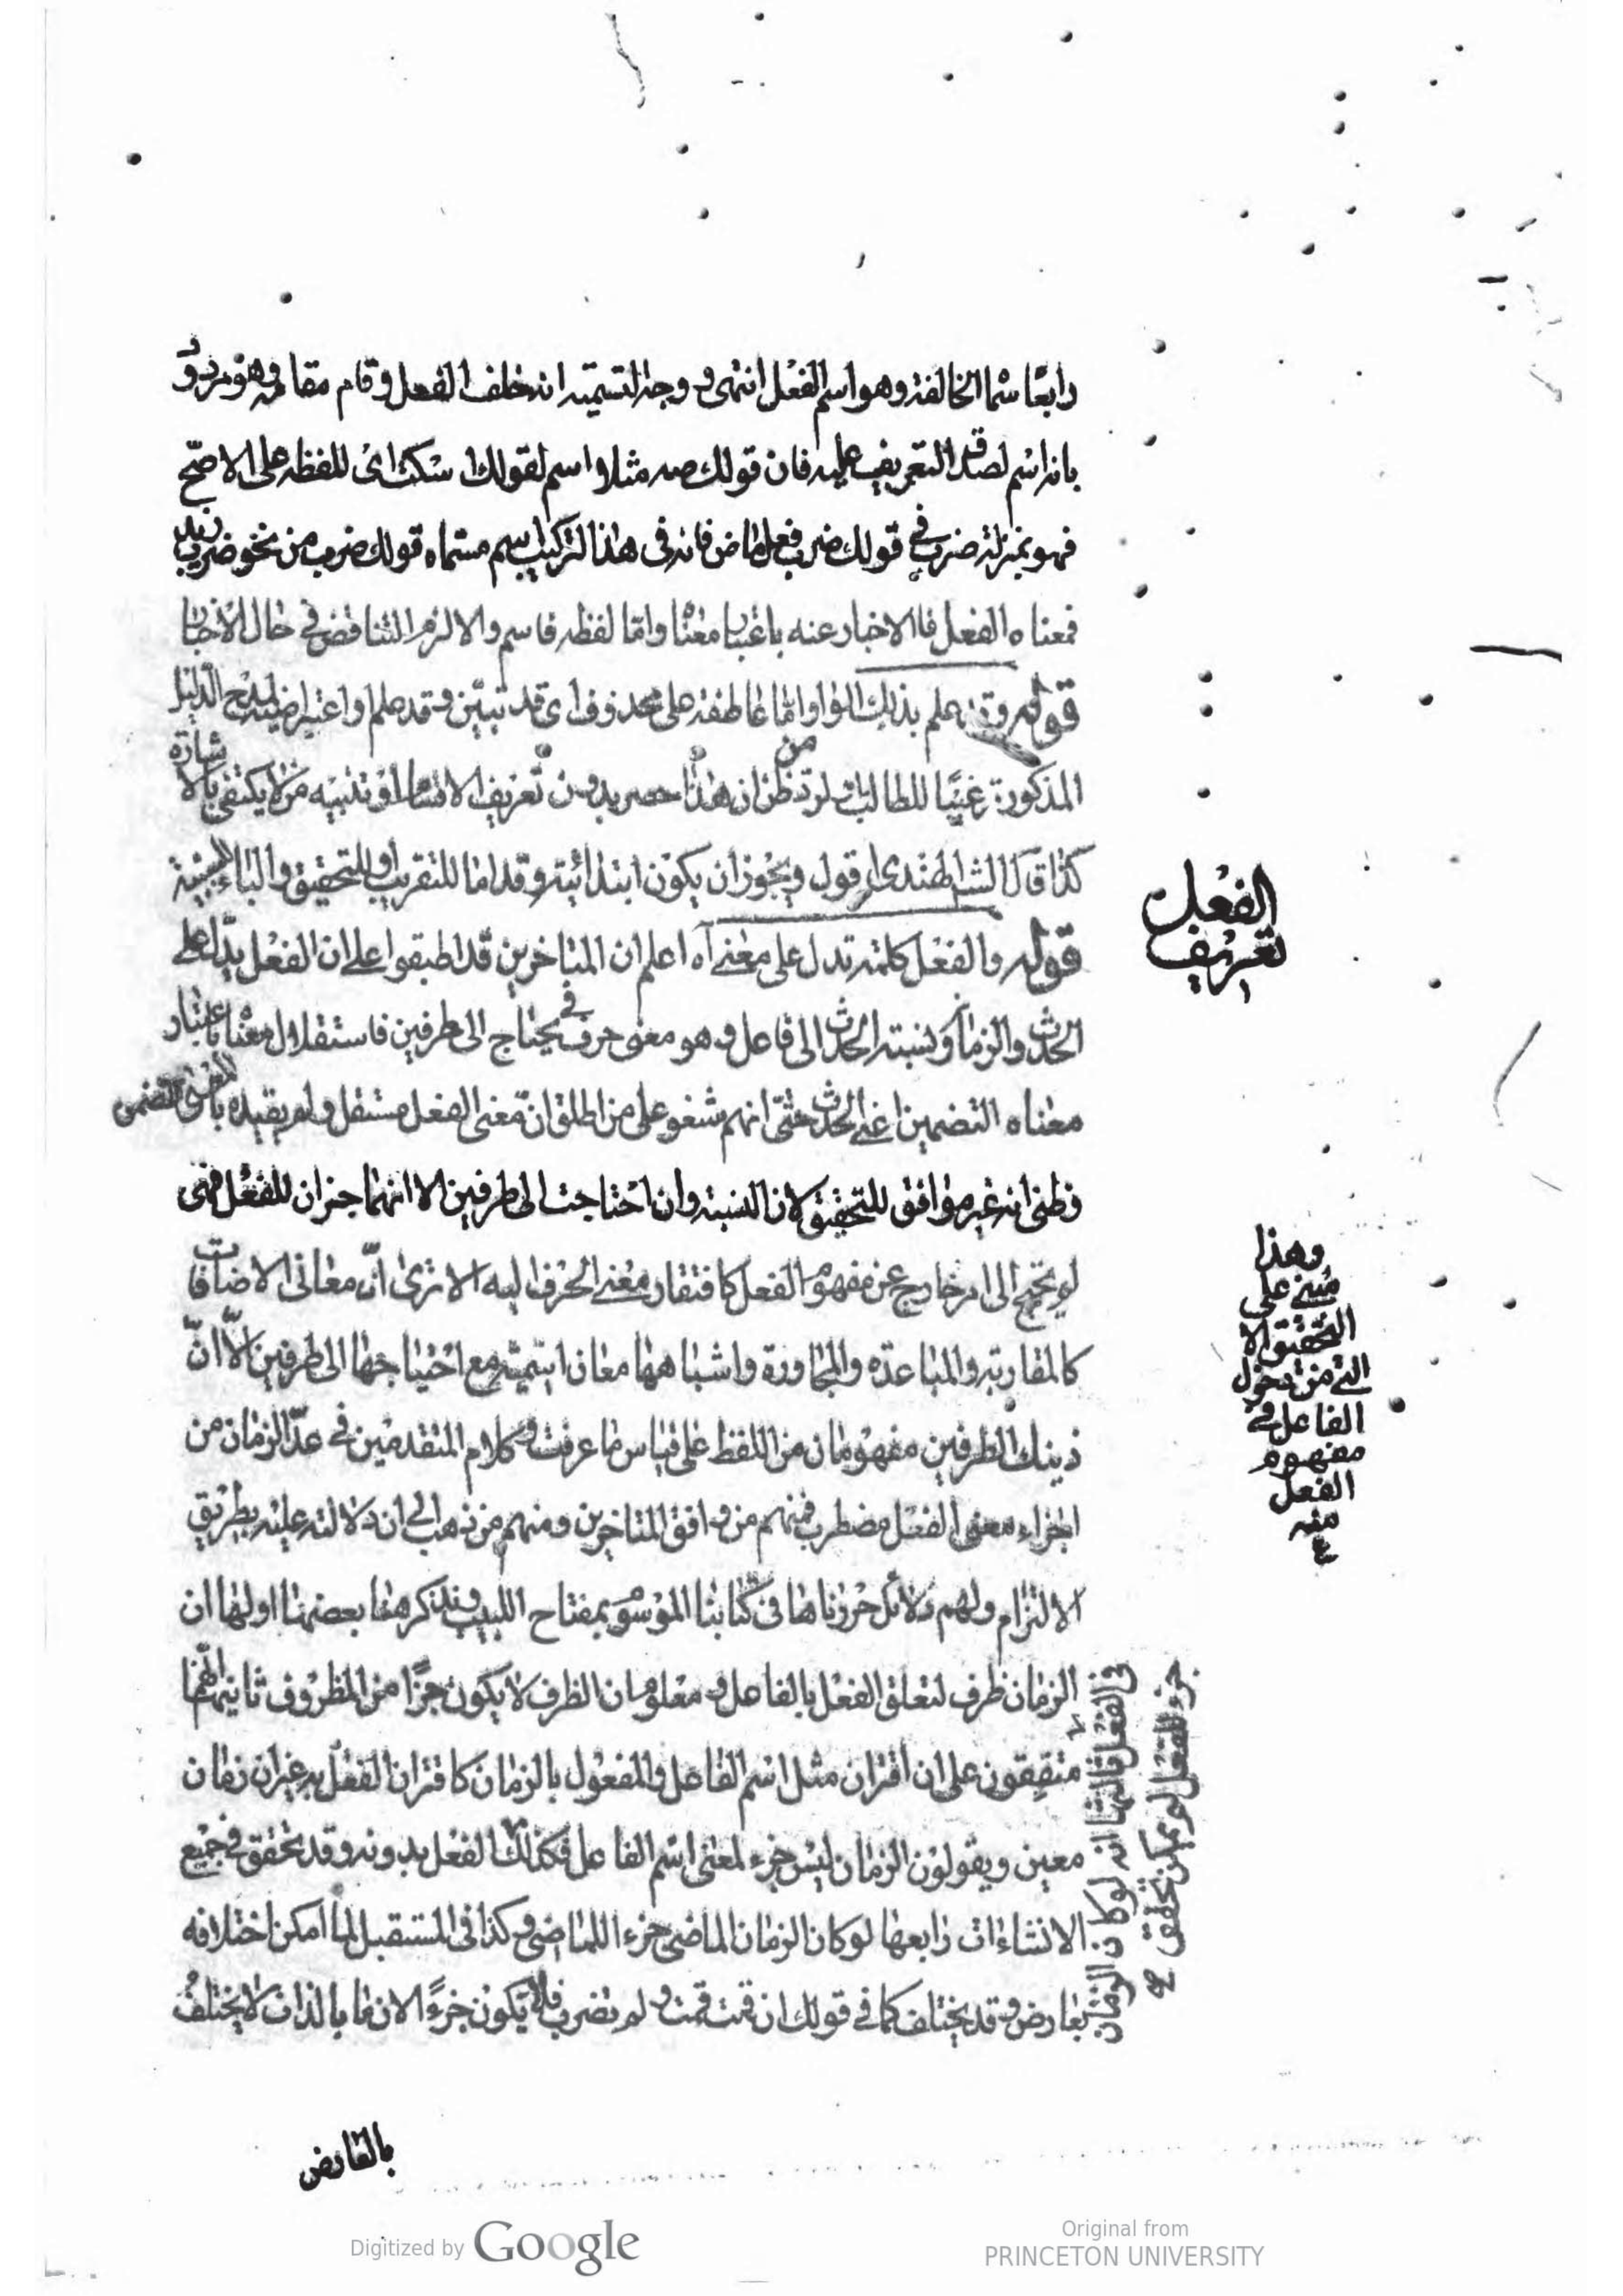 رابعًا سماه الخالفة وهو اسم الفعل انتهى و وجه التسمية انه خلف الفعل وقام مقامه وهو مردود
بانه اسم لصدق التعريف عليه فان قولك صه مثلا اسم لقولك اسكت اى للفظه على الاصّح
فهو بمنزلة ضرب في قولك ضرب فعل ماض فانه فى هذا التركيب اسم مسماه قولك ضرب من نحو ضرب زيد
فمعناه الفعل فالاخبار عنه باعتبار معناه واما لفظه فاسم والا لزم التناقض في حال الاخبار
قوله وقد علم بذلك الواو اما عاطفة على محذوف اى قد تبين وقد علم او اعتراضية لمدح الدليل
المذكور ترغيبًا للطالب لئلا يظن ان هذا حصر بدون تعريف الاقسام او تنبيه من لا يكتفى بالاشارة
كذا قال الشاطندى اقول ويجوز ان يكون ابتدائية وقد اما للتقريب او للتحقيق والباء سببية
قوله والفعل كلمة تدل على معنى آه اعلم ان المتاخرين قد اطبقوا على ان الفعل يدل على
الحدث والزمان ونسبة الحدث الى فاعل و هو معنى حرفى يحتاج الى طرفين فاستقلال معناه باعتبار
معناه التضمنى اعنى الحدث حتّى انهم شنعو على من اطلق انّ معنى الفعل مستقل ولم يقيده بالمعنى التضمن
وظنى انه غير موافق للتحقيق لان النسبة وان احتاجت الى طرفين الا انهما جزان للفعل فهى
لم تحتج الى امر خارج عن مفهوم الفعل كافتقار معنى الحرف اليه الا ترى انّ معانى الاضافات
كالمقاربة والمباعدة والمجاورة واشباهها معان اسمية مع احتياجها الى طرفين الاّ انّ
ذينك الطرفين مفهومان من اللفظ على قياس ما عرفت و كلام المتقدمين في عدّ الزمان من
اجزاء معنى الفعل مضطرب فمنهم من وافق المتاخرين ومنهم من ذهب الى ان دلالته عليه بطريق
الالتزام ولهم دلائل حررناها فى كتابنا الموسوم بمفتاح اللبيب و نذكر هنا بعضها اولها ان
الزمان ظرف لتعلق الفعل بالفاعل و معلوم ان الظرف لا يكون جزأ من المظروف ثانيها انهم
متفقون على ان اقتران مثل اسم الفاعل والمفعول بالزمان كاقتران الفعل به غير ان زمان
معين ويقولون الزمان ليس جزء لمعنى اسم الفاعل فكذلك الفعل بدونه وقد تحقق في جميع
الانشاءات رابعها لو كان الزمان الماضى جزء اللماضى وكذا فى المستقبل لما امكن اختلافه
بعارض و قد يختلف كما في قولك ان قمت قمت و لم تضرب فلا يكون جزءًا لان ما بالذات لا يختلف
بالعارض
الفعل
تعريف
وهذا
مبنى على
التحقيق الا
الفاعل في
مفهوم
الفعل
منه
فى الفعل ثالثها انه لو كان الزمان
جزء للفعل لم يمكن تحقق
Digitized by Google
Original from
PRINCETON UNIVERSITY